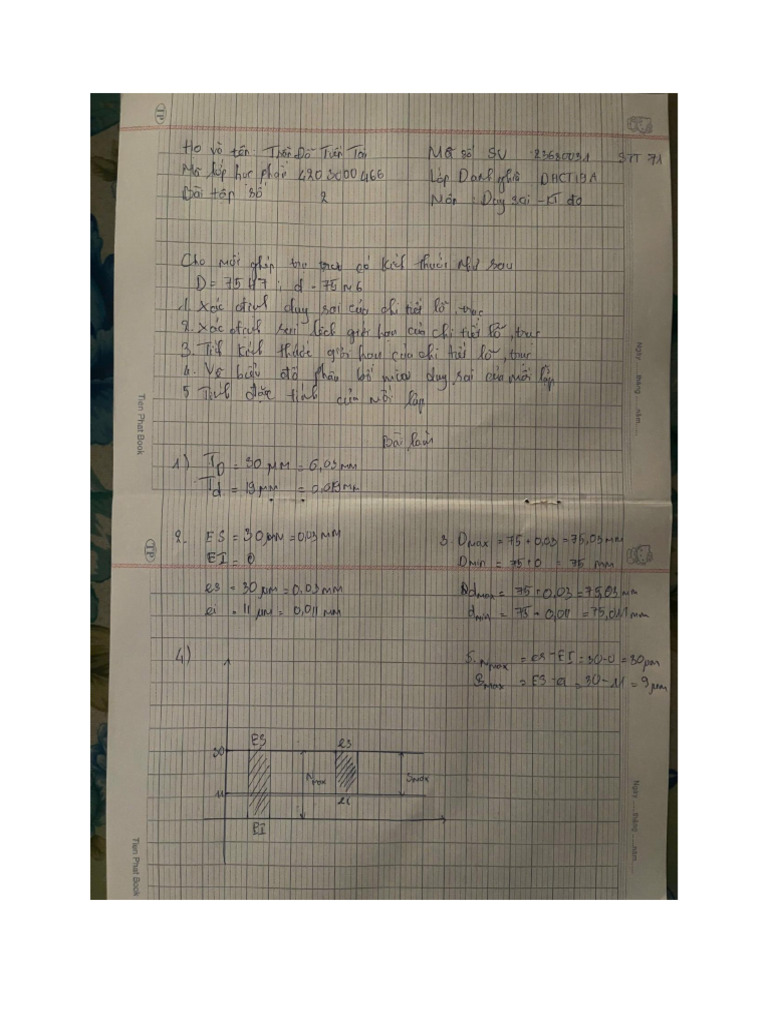 Họ và tên: Trần Đỗ Tuấn Tài Mã số SV :23680031 STT 71
Mã lớp học phần 4203000466 Lớp Danh nghĩa DHCT19A
Bài tập số 2 Môn : Dung sai - KT đo
Cho mối ghép trụ trơn có kích thước như sau
D = 75H7 ; d = 75m6
1. Xác định dung sai của chi tiết lỗ, trục
2. Xác định sai lệch giới hạn của chi tiết lỗ, trục
3. Tính kích thước giới hạn của chi tiết lỗ, trục
4. Vẽ biểu đồ phân bố miền dung sai của mối lắp
5 Tính đặc tính của mối lắp
Bài làm
1) TD = 30 μM = 0,03 mm
Td = 19 μm = 0,019 mm
2. ES = 30 μm = 0,03 MM
EI = 0
es = 30 μm = 0,03 mm
ei = 11 μm = 0,011 mm
3. Dmax = 75 + 0,03 = 75,03 mm
Dmin = 75 + 0 = 75 mm
dmax = 75 + 0,03 = 75,03 mm
dmin = 75 + 0,011 = 75,011 mm
4)
5. Nmax = es - EI = 30 - 0 = 30 μm
Smax = ES - ei = 30 - 11 = 9 μm
ES es
30
Nmax Smax
11
ei
EI
Ngày ..... tháng .....năm.....
Tien Phat Book
TP
TP
Ngày ..... tháng .....năm.....
Tien Phat Book